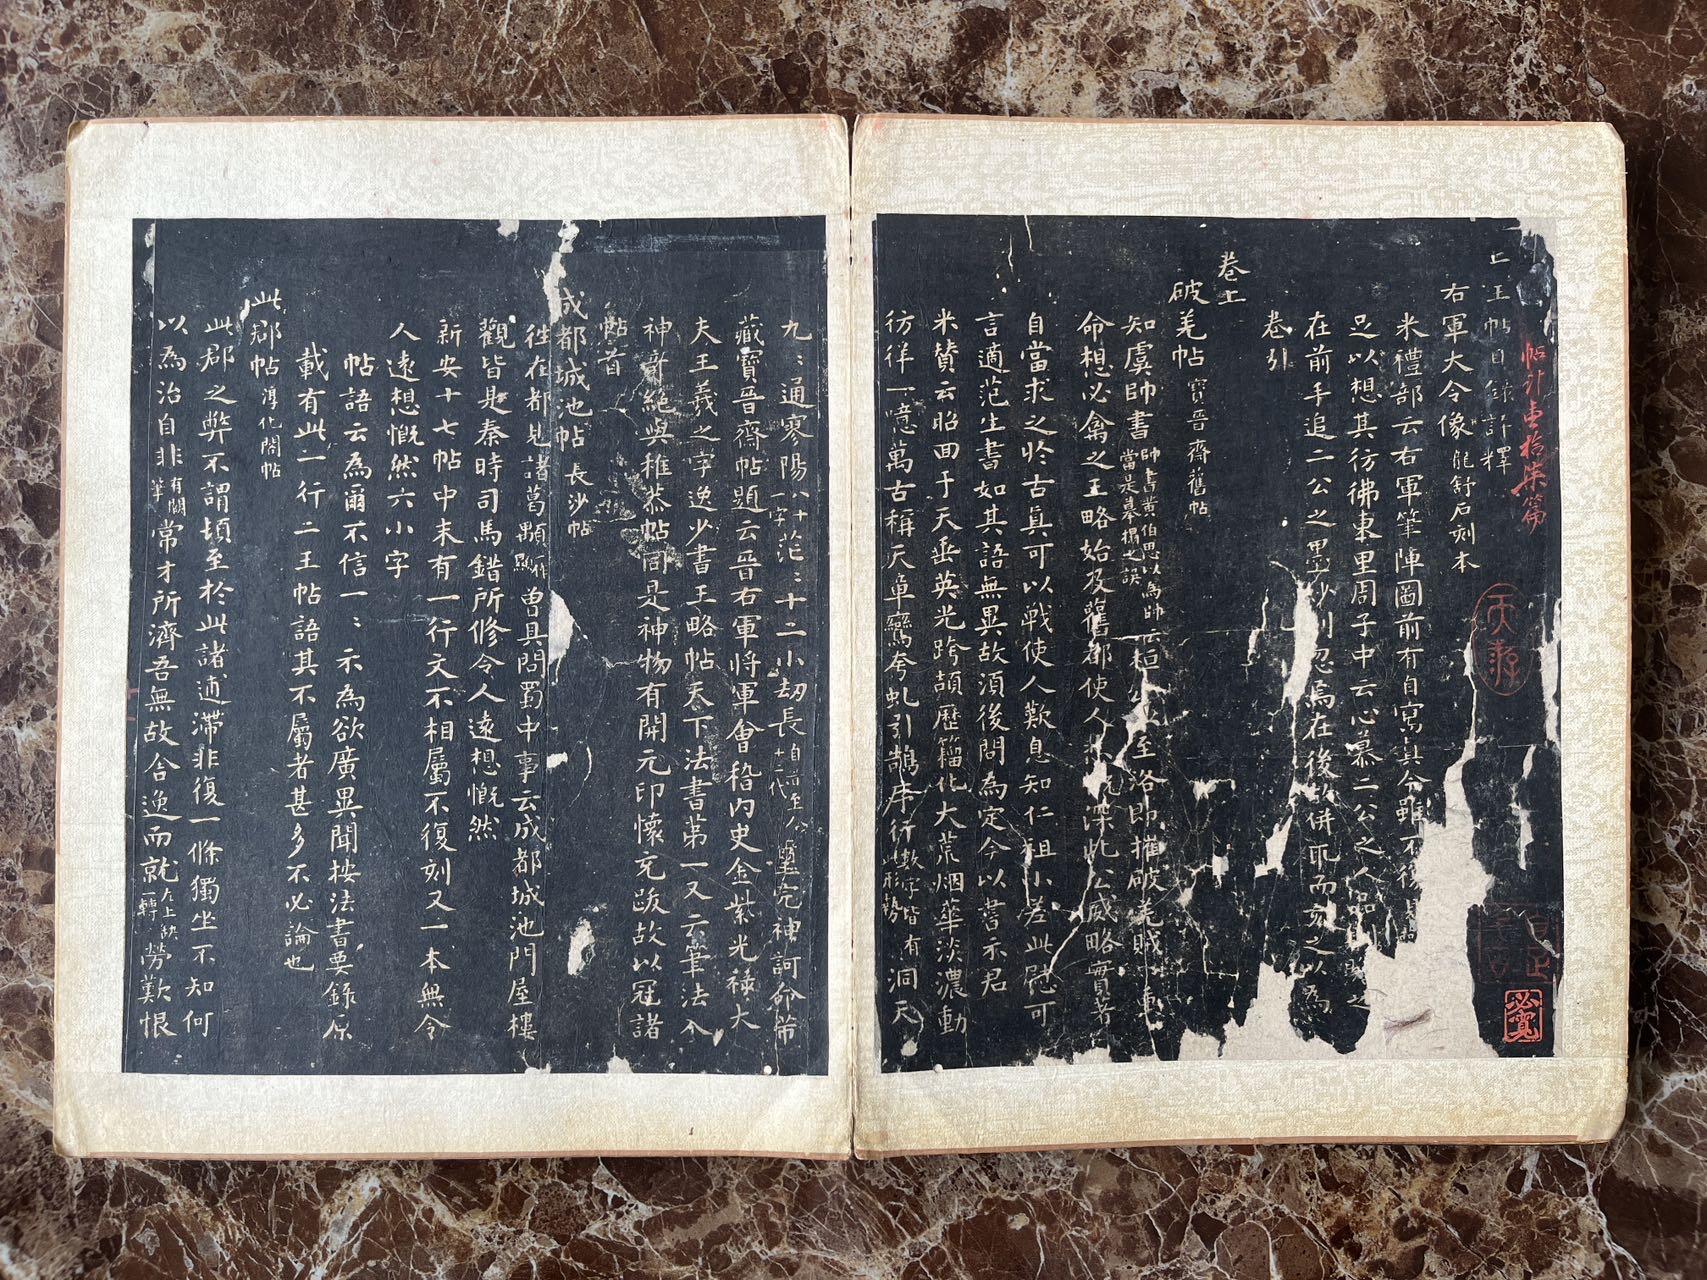 帖計壹拾柒篇
二王帖目錄評釋
右軍大令像 龍舒石刻本
米禮部云右軍筆陣圖前有自寫真今雖不復見
足以想其彷彿東里周子中云心慕二公之人品
在前手追二公之墨妙則忽焉在後故併取而
卷引
卷上
破羌帖 寶晉齋舊帖
知虞帥書 帥書黃伯思以為帥 當是摹搨之誤 云桓公 至洛即摧破羌賊 重
命想必禽之王略始及舊都使人 深此公威略實著
自當求之於古真可以戰使人歎息知仁祖小差此慰可
言適范生書如其語無異故須後問為定今以書示君
米贊云昭回于天垂英光跨頡歷籀化大荒烟華淡濃動
彷徉一噫萬古稱天章鸞夸虬引鵠序行 數字皆有 此形勢 洞天
必寬
九〻通寥陽 八十一字 茫〻十二小劫長 自晉至今十二代 璽完神訶命芾
藏寶晉齋帖題云晉右軍將軍會稽內史金紫光祿大
夫王羲之字逸少書王略帖天下法書第一又云筆法入
神奇絕與稚恭帖同是神物有開元印懷充跋故以冠諸
帖首
成都城池帖 長沙帖
往在都見諸葛顒 顒作顯 曾具問蜀中事云成都城池門屋樓
觀皆是秦時司馬錯所修令人遠想慨然
新安十七帖中末有一行文不相屬不復刻又一本無令
人遠想慨然六小字
帖語云為爾不信一〻示為欲廣異聞按法書要錄原
載有此二行二王帖語其不屬者甚多不必論也
此郡帖 淳化閣帖
此郡之弊不謂頓至於此諸逋滯非復一條獨坐不知何
以為治自非 有闕筆 常才所濟吾無故舍逸而就 左上缺一轉 勞歎恨